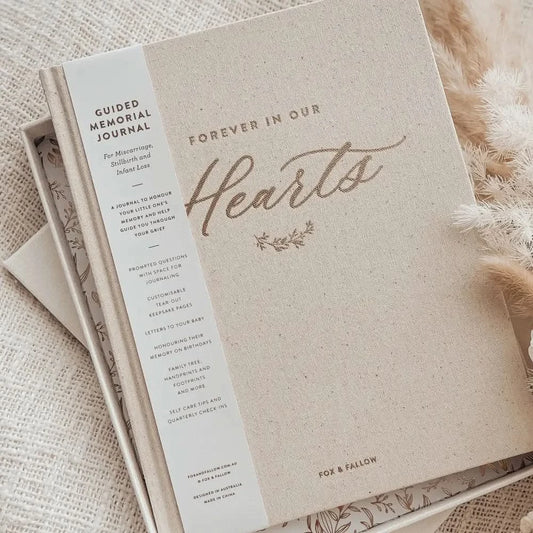 GUIDED
MEMORIAL
JOURNAL
For Miscarriage,
Stillbirth and
Infant Loss
A JOURNAL TO HONOUR
YOUR LITTLE ONE'S
MEMORY AND HELP
GUIDE YOU THROUGH
YOUR GRIEF
PROMPTED QUESTIONS
WITH SPACE FOR
JOURNALING
CUSTOMISABLE
TEAR-OUT
KEEPSAKE PAGES
LETTERS TO YOUR BABY
HONOURING THEIR
MEMORY ON BIRTHDAYS
FAMILY TREE,
HANDPRINTS AND
FOOTPRINTS
AND MORE
SELF CARE TIPS AND
QUARTERLY CHECK INS
FOXANDFALLOW.COM.AU
© FOX & FALLOW
DESIGNED IN AUSTRALIA
MADE IN CHINA
FOREVER IN OUR
Hearts
FOX & FALLOW